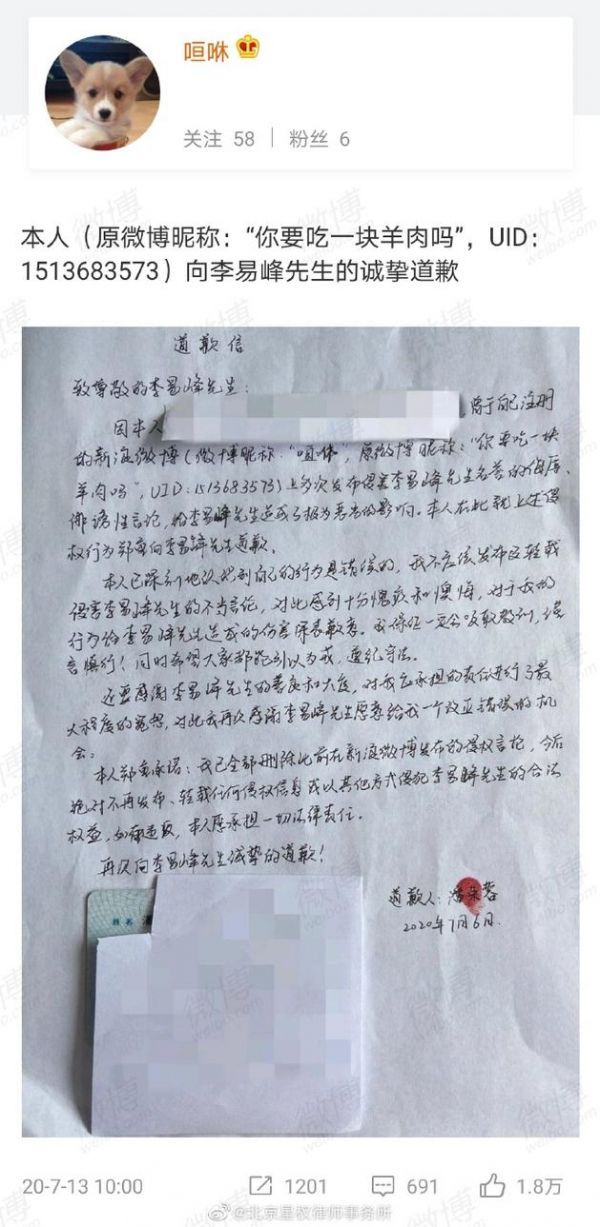 喧咻
关注 58 粉丝 6
本人（原微博昵称：“你要吃一块羊肉吗”，UID：
1513683573）向李易峰先生的诚挚道歉
道歉信
致尊敬的李易峰先生：
因本人 属于自己注册
的新浪微博（微博昵称：“喧咻”，原微博昵称：“你要吃一块
羊肉吗”，UID:1513683573)上多次发布侵害李易峰先生名誉的侮辱、
诽谤性言论，给李易峰先生造成了极为恶劣的影响。本人在此就上述侵
权行为郑重向李易峰先生道歉。
本人已深刻地认识到自己的行为是错误的，我不应该发布及转载
侵害李易峰先生的不当言论，对此感到十分愧疚和懊悔，对于我的
行为给李易峰先生造成的伤害深表歉意。我保证一定会吸取教训，谨
言慎行！同时希望大家都能引以为戒，遵纪守法。
还要感谢李易峰先生的善良和大度，对我应承担的责任进行了最
大程度的宽恕，对此我再次感谢李易峰先生愿意给我一个改正错误的机
会。
本人郑重承诺：我已全部删除此前在新浪微博发布的侵权言论，今后
绝对不再发布、转载任何侵权信息或以其他方式侵犯李易峰先生的合法
权益，如有违反，本人愿承担一切法律责任。
再次向李易峰先生诚挚的道歉！
姓名 潘
道歉人：潘
2020年7月6日
20-7-13 10:00 1201 691 1.8万
@北京星权律师事务所
微博
weibo.com